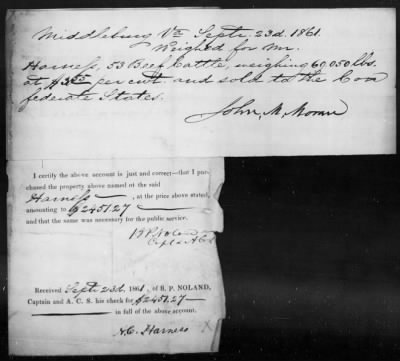 Middleburg Va Septr. 23d. 1861.
Weighed for Mr.
Harness, 53 Beef Cattle, weighing 60,050 lbs.
at $ per cwt and sold to the Con
federate States.
John, M,
I certify the above account is just and correct—that I pur-
chased the property above named of the said
Harness, at the price above stated,
amounting to $2451.27
and that the same was necessary for the public service.
B P Noland
Capt & A C S
Received Septr 23d. 1861, of B. P. NOLAND,
Captain and A. C. S. his check for $2451.27
in full of the above account.
Harness